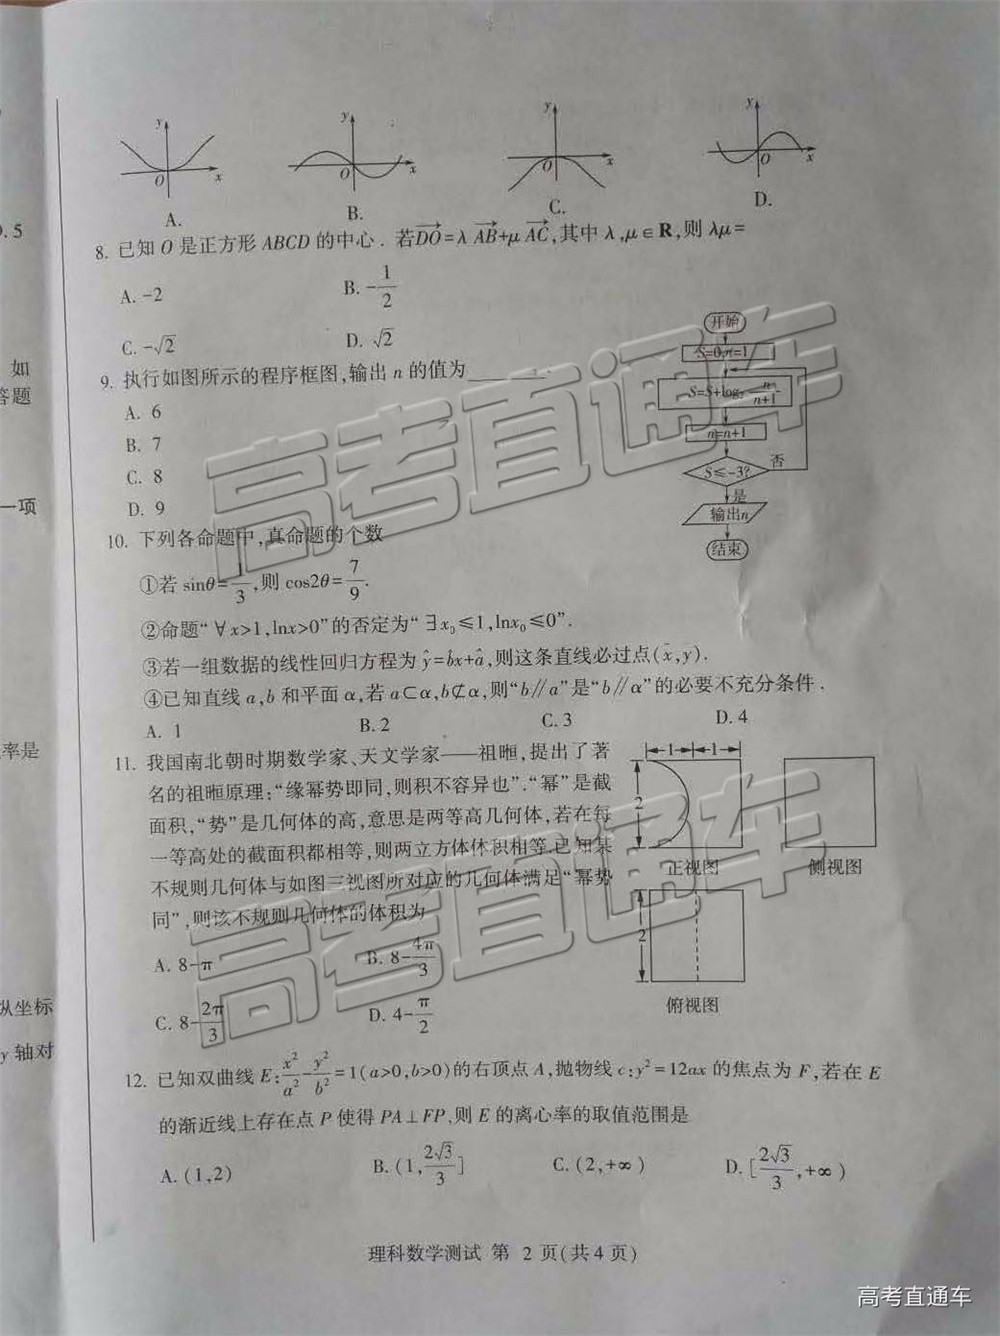 y
O
x
A.
y
O
x
B.
y
O
x
C.
y
O
x
D.
8. 已知 O 是正方形 ABCD 的中心．若DO=λ AB+μ AC,其中 λ,μ∈R,则 λμ=
A. -2
B. -1/2
C. -√2
D. √2
9. 执行如图所示的程序框图,输出 n 的值为________.
A. 6
B. 7
C. 8
D. 9
开始
S=0,n=1
S=S+log₂ n/(n+1)
n=n+1
S≤-3?
否
是
输出n
结束
10. 下列各命题中,真命题的个数
①若 sinθ=1/3,则 cos2θ=7/9.
②命题“∀x>1,lnx>0”的否定为“∃x₀≤1,lnx₀≤0”.
③若一组数据的线性回归方程为 ŷ=b̂x+â,则这条直线必过点(x̄,ȳ).
④已知直线 a,b 和平面 α,若 a⊂α,b⊄α,则“b∥a”是“b∥α”的必要不充分条件．
A. 1
B. 2
C. 3
D. 4
11. 我国南北朝时期数学家、天文学家——祖暅,提出了著
名的祖暅原理:“缘幂势即同,则积不容异也”.“幂”是截
面积,“势”是几何体的高,意思是两等高几何体,若在每
一等高处的截面积都相等,则两立方体体积相等.已知某
不规则几何体与如图三视图所对应的几何体满足“幂势
同”,则该不规则几何体的体积为
A. 8-π
B. 8-4π/3
C. 8-2π/3
D. 4-π/2
1
1
2
正视图
侧视图
2
俯视图
12. 已知双曲线 E:x²/a²-y²/b²=1(a>0,b>0)的右顶点 A,抛物线 c:y²=12ax 的焦点为 F,若在 E
的渐近线上存在点 P 使得 PA⊥FP,则 E 的离心率的取值范围是
A. (1,2)
B. (1,2√3/3]
C. (2,+∞)
D. [2√3/3,+∞)
理科数学测试 第 2 页(共 4 页)
. 5
如
答题
一项
率是
纵坐标
y 轴对
高考直通车
高考直通车
高考直通车